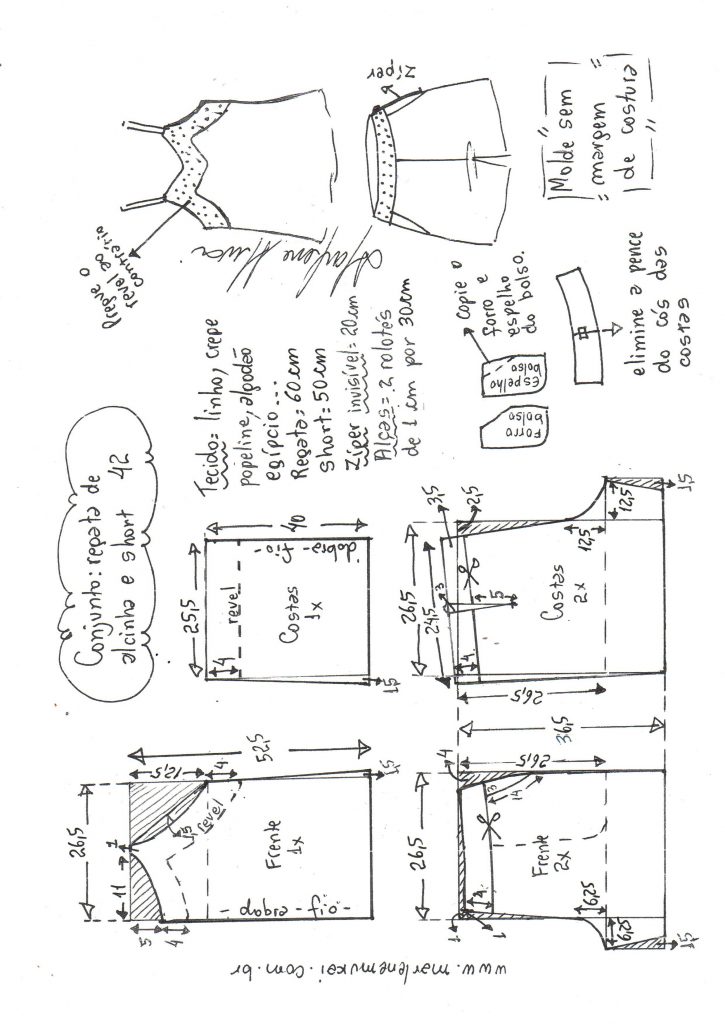 Conjunto: regata de
alcinha e short 42
Tecido: linho, crepe
popeline, algodão
egípcio...
Regata: 60cm
short: 50cm
Zíper invisível = 20cm
Alças = 2 rolotês
de 1 cm por 30cm
Pregue o
revel ao
contrário
Marlene Mukai
Zíper
"Molde sem
margem"
"de costura"
copie o
forro e
espelho
do bolso.
Espelho
bolso
Forro
bolso
elimine a pence
do cós das
costas
26,5
11
1
5
4
12,5
4
15
revel
52,5
Frente
1x
dobra-fio-
1,5
25,5
4
revel
40
Costas
1x
dobra-fio-
1,5
26,5
1
1
4
4
3
14
26,5
36,5
Frente
2x
6,25
6,25
1,5
1,5
26,5
24,5
3,5
2,5
4
3
5
26,5
Costas
2x
12,5
12,5
1,5
1,5
www.marlenemukai.com.br